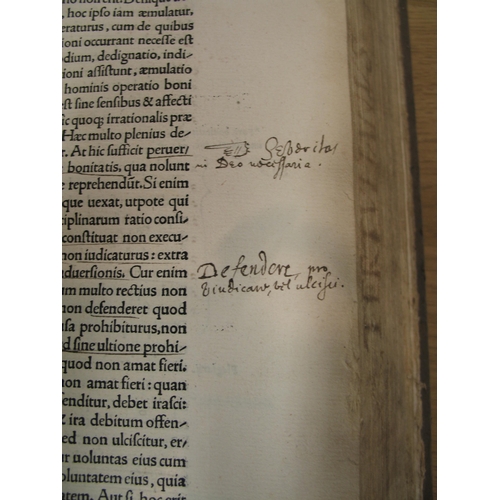 , hoc ipso iam æmulatur,
eraturus, cum de quibus
ioni occurrant necesse est
dium, dedignatio, indi-
ioni assistunt, æmulatio
hominis operatio boni
est sine sensibus & affecti
sic quoq; irrationalis præ
Hæc multo plenius de-
At hic sufficit peruer-
bonitatis, qua nolunt
reprehendūt. Si enim
que uexat, utpote qui
ciplinarum ratio consi-
constituat non execu-
non iudicaturus: extra
aduersionis. Cur enim
um multo rectius non
non defenderet quod
sa prohibiturus, non
d sine ultione prohi-
quod non amat fieri.
non amat fieri: quan
enditur, debet irasci:
& ira debitum offen-
ed non ulciscitur, er-
ur uoluntas eius cum
oluntatem eius, quia
tem. Aut si, hoc erit
Seueritas
in Deo necessaria.
Defendere, pro
Vindicare, vel ulcisci.